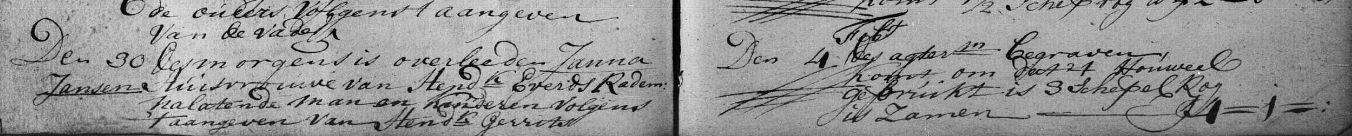 de ouders volgenst aangeven
van de vader
Den 30 des morgens is overleeden Janna
Jansen Huisvrouwe van Hend:k Everds Radem:
nalatende man en kinderen volgens
aangeven van Hend:k Gerrots
½ Schepel rog
Febr
Den 4 des agterm Begraven
komt om dat 't Houweel
gebruikt is 3 Schepel Rog
is Zamen — 4-1-: